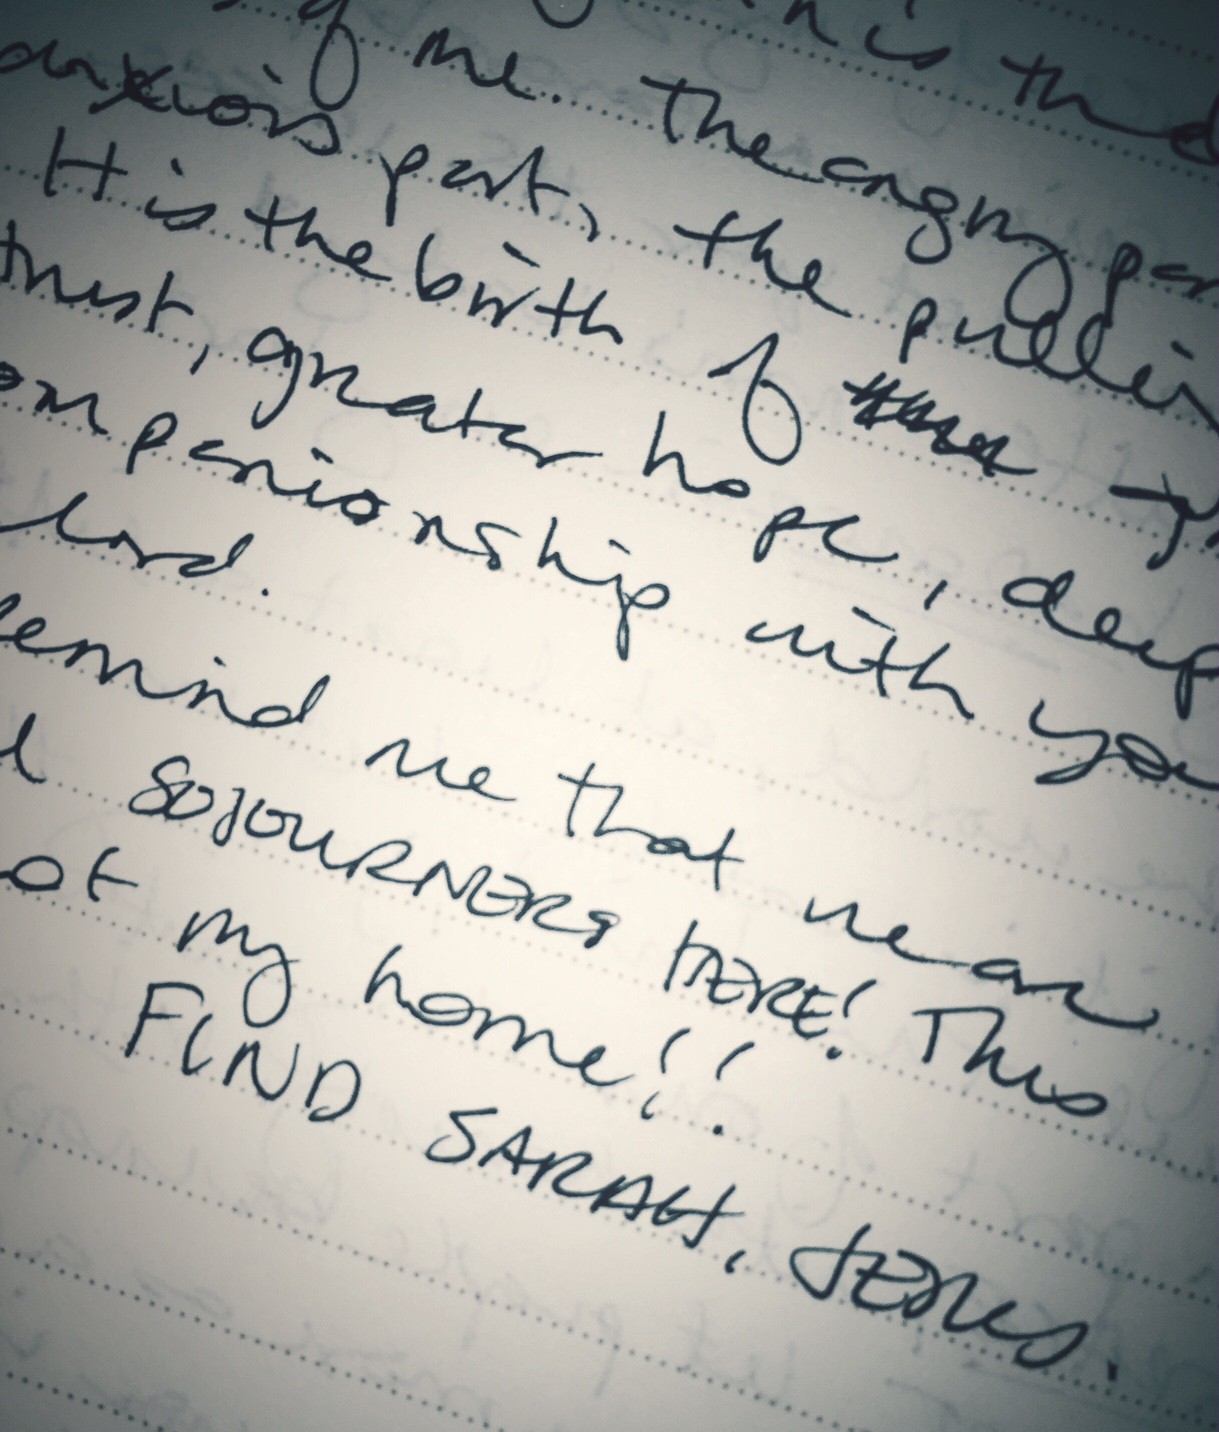 his
of me. The angry par
anxiois part, the pullin
H is the birth of
trust, greater hope, deep
ompanionship with you
lord.
emind me that we are
l SOJOURNERS HERE! This
ot my home!!
FIND SARAH, JESUS.